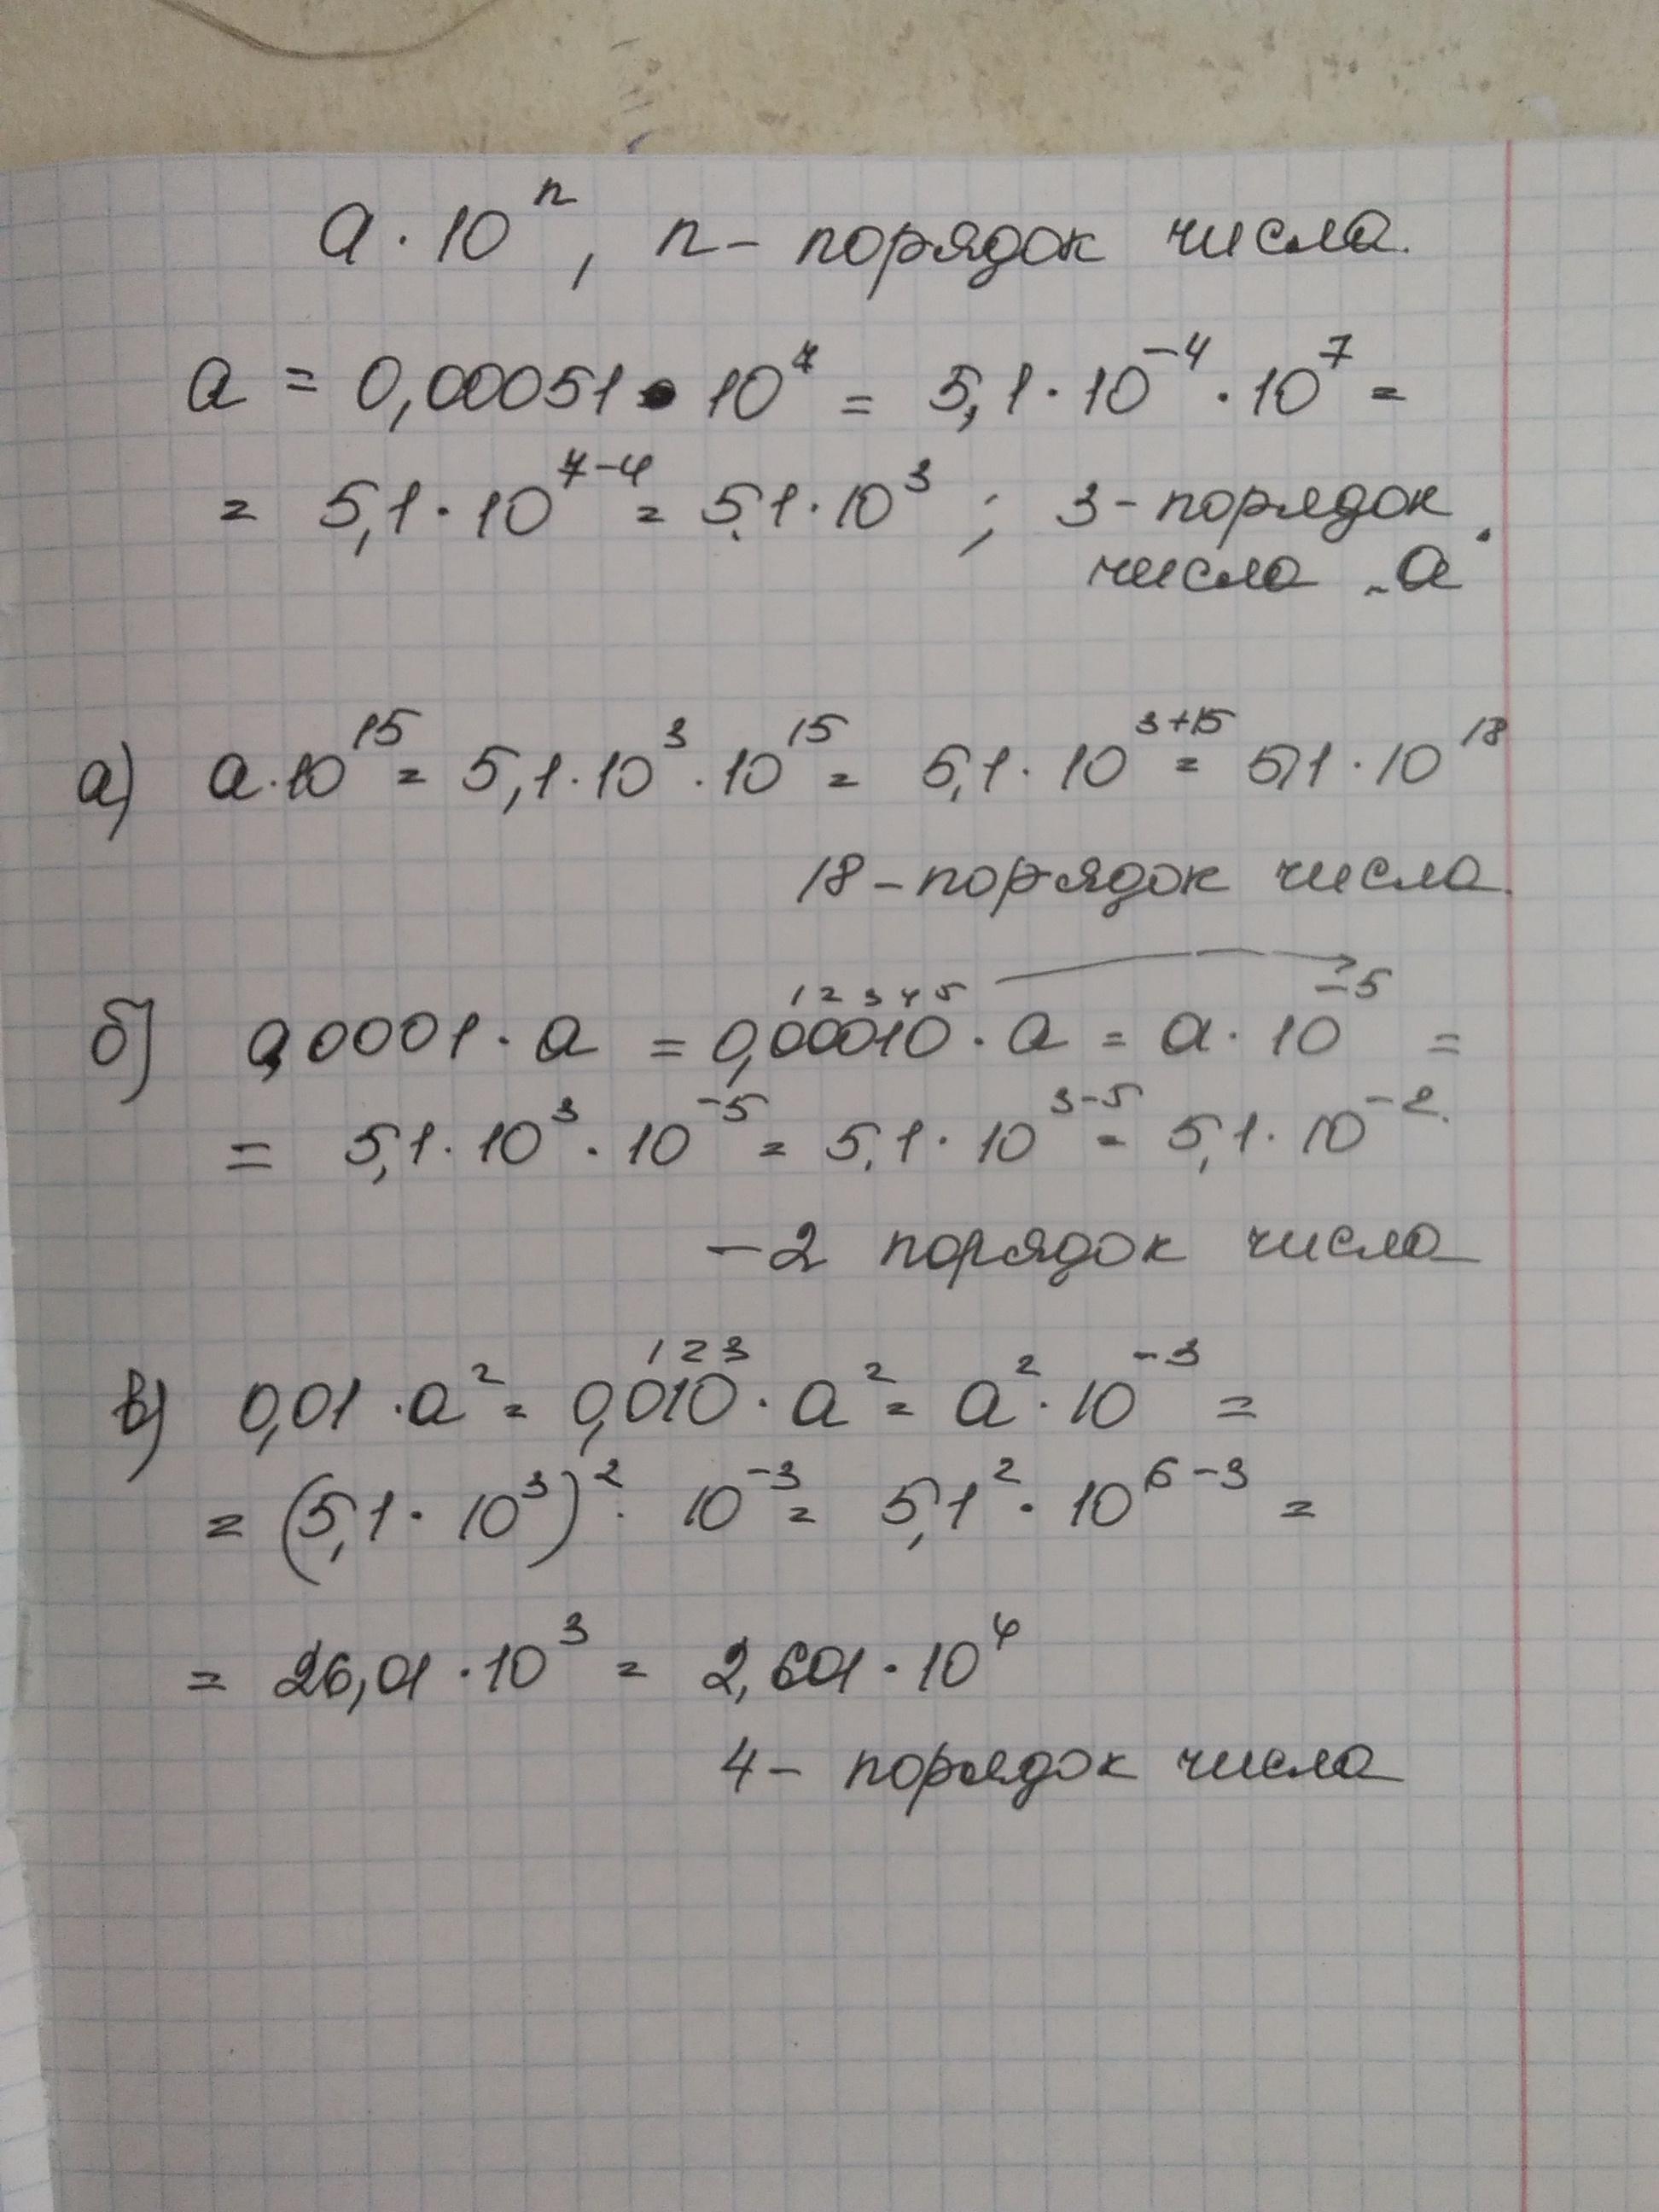 a · 10ⁿ, n – порядок числа.
a = 0,00051 · 10⁷ = 5,1 · 10⁻⁴ · 10⁷ =
= 5,1 · 10⁷⁻⁴ = 5,1 · 10³ ; 3 – порядок
числа „a“
а) a · 10¹⁵ = 5,1 · 10³ · 10¹⁵ = 5,1 · 10³⁺¹⁵ = 5,1 · 10¹⁸
18 – порядок числа.
1 2 3 4 5
б) 0,0001 · a = 0,00010 · a = a · 10⁻⁵ =
= 5,1 · 10³ · 10⁻⁵ = 5,1 · 10³⁻⁵ = 5,1 · 10⁻².
–2 порядок числа
1 2 3
в) 0,01 · a² = 0,010 · a² = a² · 10⁻³ =
= (5,1 · 10³)² · 10⁻³ = 5,1² · 10⁶⁻³ =
= 26,01 · 10³ = 2,601 · 10⁴
4 – порядок числа